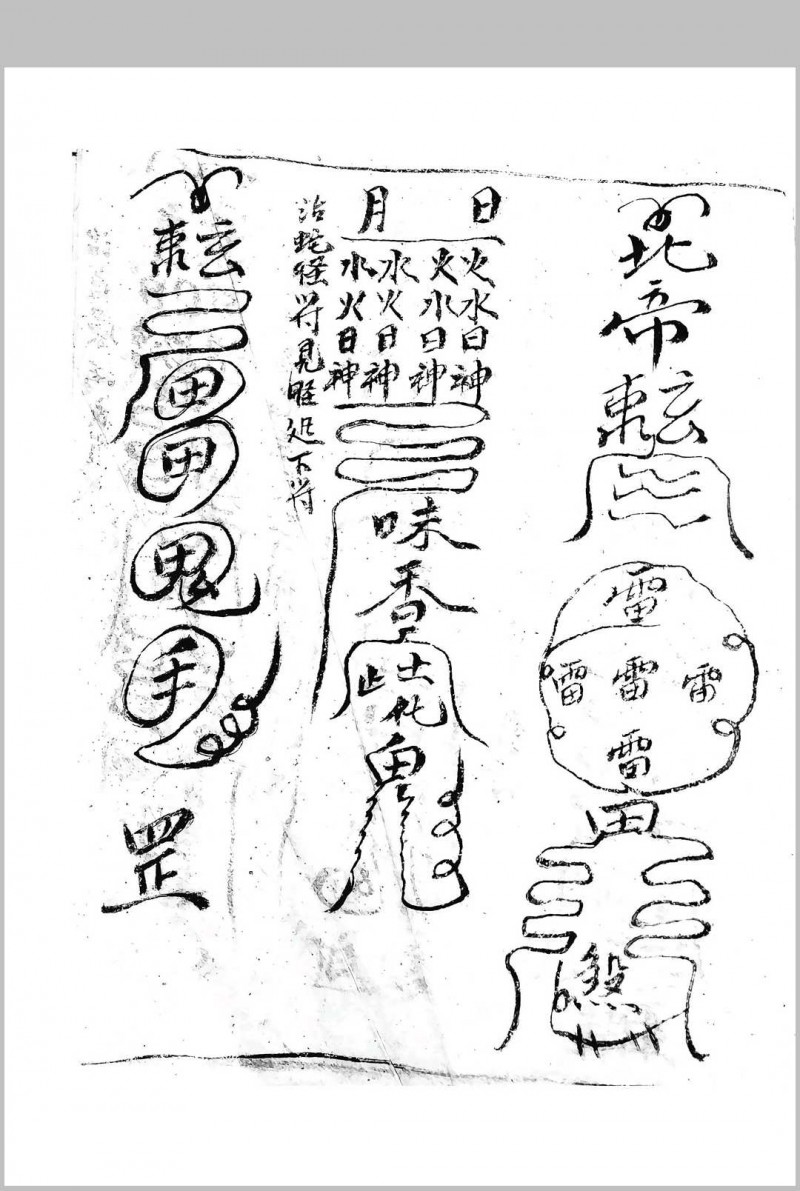 北帝
雷
雷雷雷
雷
田
煞
日月
火水日神
火水日神
水火日神
水火日神
味香
鬼
治蛇怪符見下符
田
田
鬼
手
罡